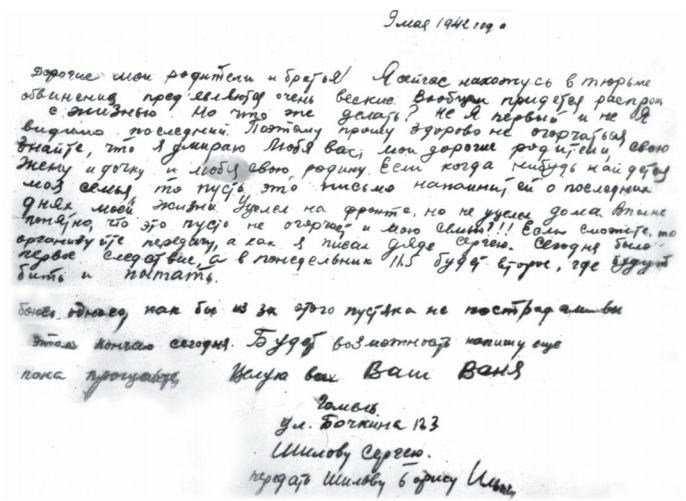 9 мая 1942 год
Дорогие мои родители и братья! Я сейчас нахожусь в тюрьме
обвинения предъявляются очень веские. Вообщем придется распрощ
с жизнью. Но что же делать? Не я первый и не я
видимо последний. Поэтому прошу здорово не огорчаться
Знайте, что я умираю любя вас, мои дорогие родители, свою
жену и дочку и любя свою, родину. Если когда нибудь найдется
моя семья, то пусть это письмо напомнит ей о последних
днях моей жизни. Уцелел на фронте, но не уцелел дома. Вполне
понятно, что это пусть не огорчает и мою семью?!! Если сможете, то
организуйте передачу, а как я писал дяде Сергею. Сегодня было
первое следствие, а в понедельник 11.5 будет второе, где будут
бить и пытать.
боюсь однако, как бы из за этого пустяка не пострадали вы
этом кончаю сегодня. Будет возможность напишу еще
пока прощайте Целую вас Ваш Ваня
Гомель
ул. Бочкина 123
Шилову Сергею.
передать Шилову Борису